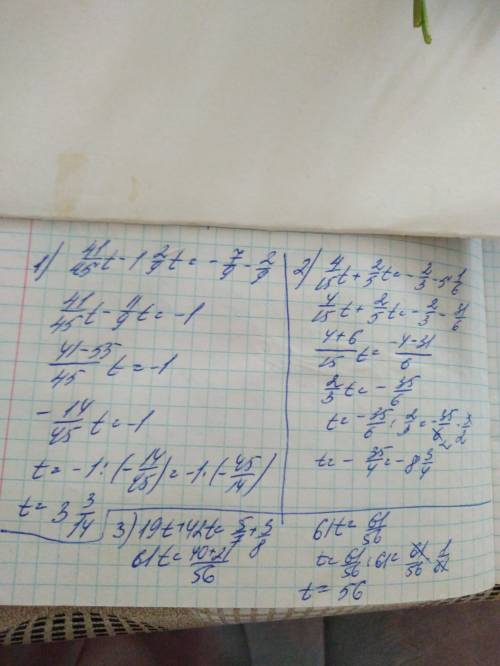 1) 41/45 t - 1 2/9 t = - 7/9 - 2/9
41/45 t - 11/9 t = -1
41-55/45 t = -1
- 14/45 t = -1
t = -1 : (- 14/45) = -1 · (- 45/14)
t = 3 3/14
2) 4/15 t + 2/5 t = - 2/3 - 5 1/6
4/15 t + 2/5 t = - 2/3 - 31/6
4+6/15 t = -4-31/6
2/3 t = - 35/6
t = - 35/6 : 2/3 = - 35/6 · 3/2
t = - 35/4 = -8 3/4
3) 19t + 42t = 5/7 + 3/8
61t = 40+21/56
61t = 61/56
t = 61/56 : 61 = 61/56 · 1/61
t = 56